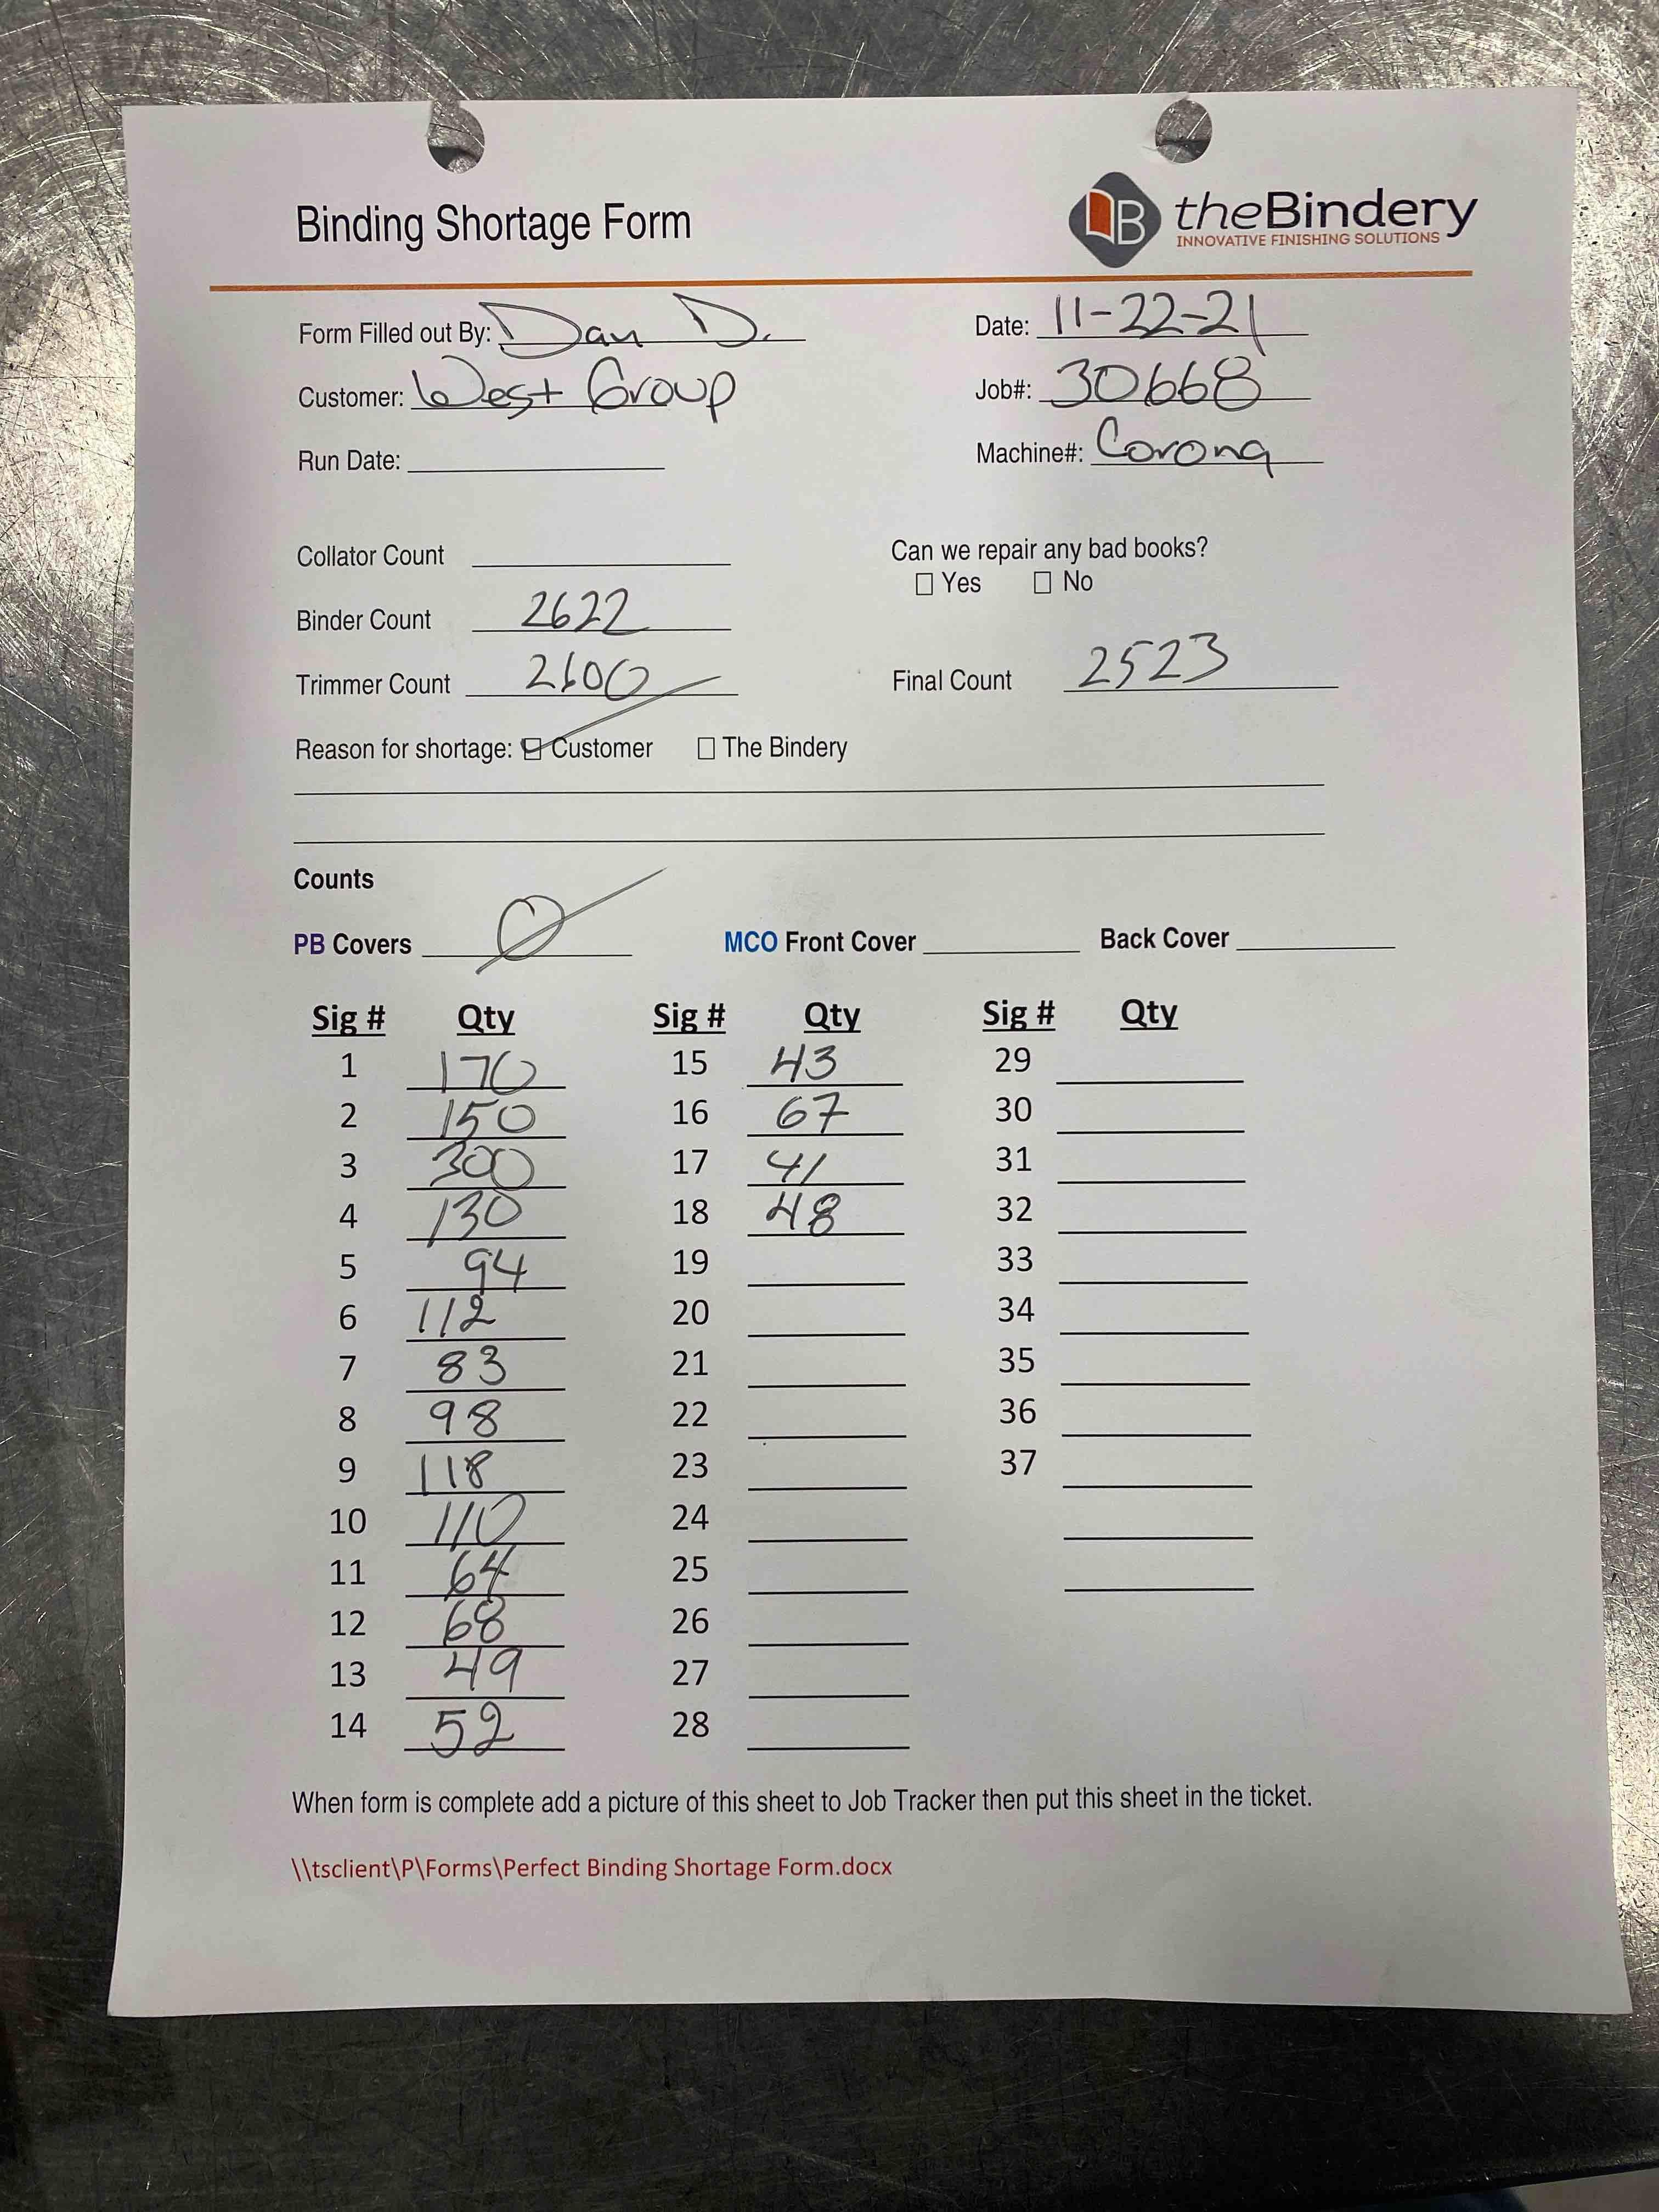 Binding Shortage Form
B theBindery
INNOVATIVE FINISHING SOLUTIONS
Form Filled out By: Dan D. Date: 11-22-21
Customer: West Group Job#: 30668
Run Date: Machine#: Corona
Collator Count Can we repair any bad books?
☐ Yes ☐ No
Binder Count 2622
Trimmer Count 2600 Final Count 2523
Reason for shortage: ☑ Customer ☐ The Bindery
Counts
PB Covers 0 MCO Front Cover Back Cover
Sig # Qty Sig # Qty Sig # Qty
1 170 15 43 29
2 150 16 67 30
3 300 17 41 31
4 130 18 48 32
5 94 19 33
6 112 20 34
7 83 21 35
8 98 22 36
9 118 23 37
10 110 24
11 64 25
12 68 26
13 49 27
14 52 28
When form is complete add a picture of this sheet to Job Tracker then put this sheet in the ticket.
\\tsclient\P\Forms\Perfect Binding Shortage Form.docx